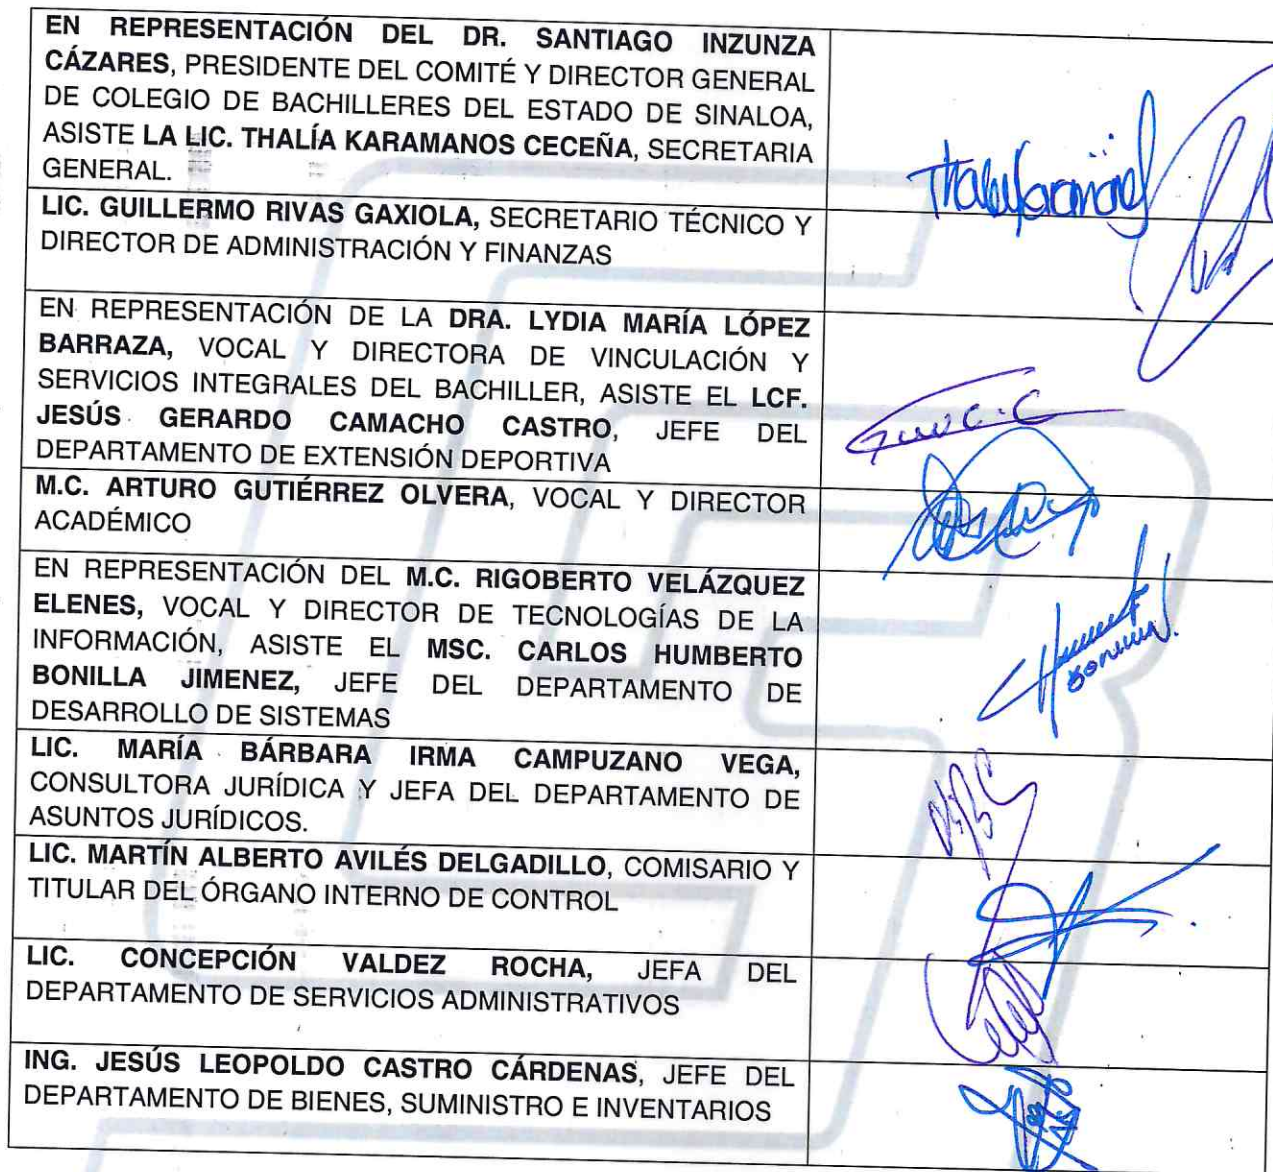 EN REPRESENTACIÓN DEL DR. SANTIAGO INZUNZA
CÁZARES, PRESIDENTE DEL COMITÉ Y DIRECTOR GENERAL
DE COLEGIO DE BACHILLERES DEL ESTADO DE SINALOA,
ASISTE LA LIC. THALÍA KARAMANOS CECEÑA, SECRETARIA
GENERAL.
LIC. GUILLERMO RIVAS GAXIOLA, SECRETARIO TÉCNICO Y
DIRECTOR DE ADMINISTRACIÓN Y FINANZAS
EN REPRESENTACIÓN DE LA DRA. LYDIA MARÍA LÓPEZ
BARRAZA, VOCAL Y DIRECTORA DE VINCULACIÓN Y
SERVICIOS INTEGRALES DEL BACHILLER, ASISTE EL LCF.
JESÚS GERARDO CAMACHO CASTRO, JEFE DEL
DEPARTAMENTO DE EXTENSIÓN DEPORTIVA
M.C. ARTURO GUTIÉRREZ OLVERA, VOCAL Y DIRECTOR
ACADÉMICO
EN REPRESENTACIÓN DEL M.C. RIGOBERTO VELÁZQUEZ
ELENES, VOCAL Y DIRECTOR DE TECNOLOGÍAS DE LA
INFORMACIÓN, ASISTE EL MSC. CARLOS HUMBERTO
BONILLA JIMENEZ, JEFE DEL DEPARTAMENTO DE
DESARROLLO DE SISTEMAS
LIC. MARÍA BÁRBARA IRMA CAMPUZANO VEGA,
CONSULTORA JURÍDICA Y JEFA DEL DEPARTAMENTO DE
ASUNTOS JURÍDICOS.
LIC. MARTÍN ALBERTO AVILÉS DELGADILLO, COMISARIO Y
TITULAR DEL ÓRGANO INTERNO DE CONTROL
LIC. CONCEPCIÓN VALDEZ ROCHA, JEFA DEL
DEPARTAMENTO DE SERVICIOS ADMINISTRATIVOS
ING. JESÚS LEOPOLDO CASTRO CÁRDENAS, JEFE DEL
DEPARTAMENTO DE BIENES, SUMINISTRO E INVENTARIOS